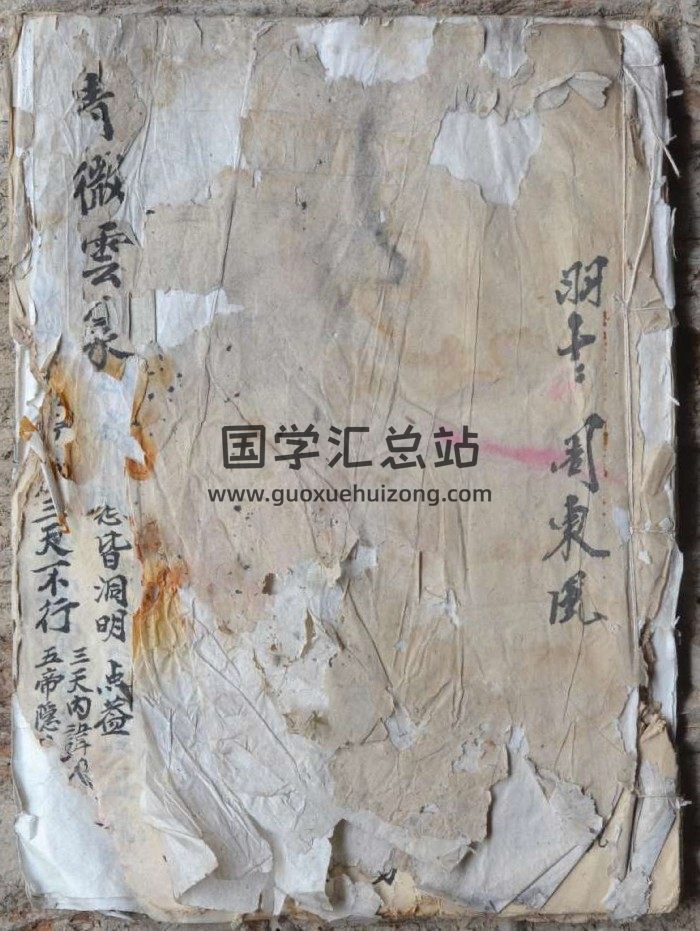 羽士 周東風
国学汇总站
www.guoxuehuizong.com
青微雲
皆洞明 点益
三天内諱
三天不行
五帝隱